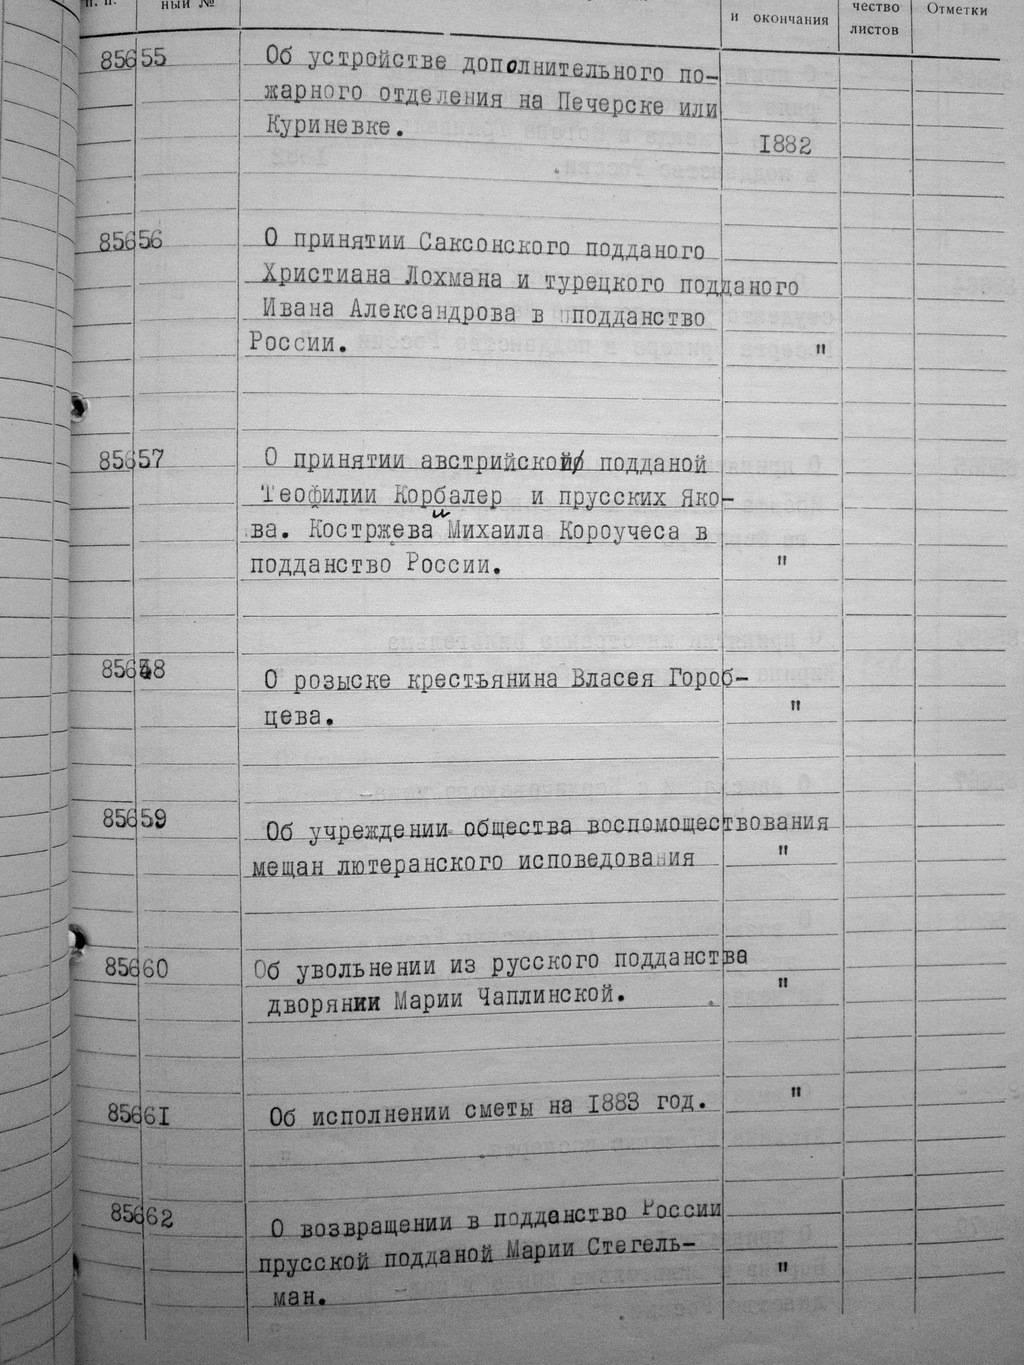 п. п.
ный №
и окончания
чество
листов
Отметки
85655
Об устройстве дополнительного по-
жарного отделения на Печерске или
Куриневке.
1882
85656
О принятии Саксонского подданого
Христиана Лохмана и турецкого подданого
Ивана Александрова в пподданство
России.
"
85657
О принятии австрийской подданой
Теофилии Корбалер и прусских Яко-
ва. Костржева и Михаила Короучеса в
подданство России.
"
85658
О розыске крестьянина Власея Гороб-
цева.
"
85659
Об учреждении общества воспомоществования
мещан лютеранского исповедования
"
85660
Об увольнении из русского подданства
дворянии Марии Чаплинской.
"
85661
Об исполнении сметы на 1883 год.
"
85662
О возвращении в подданство России
прусской подданой Марии Стегель-
ман.
"